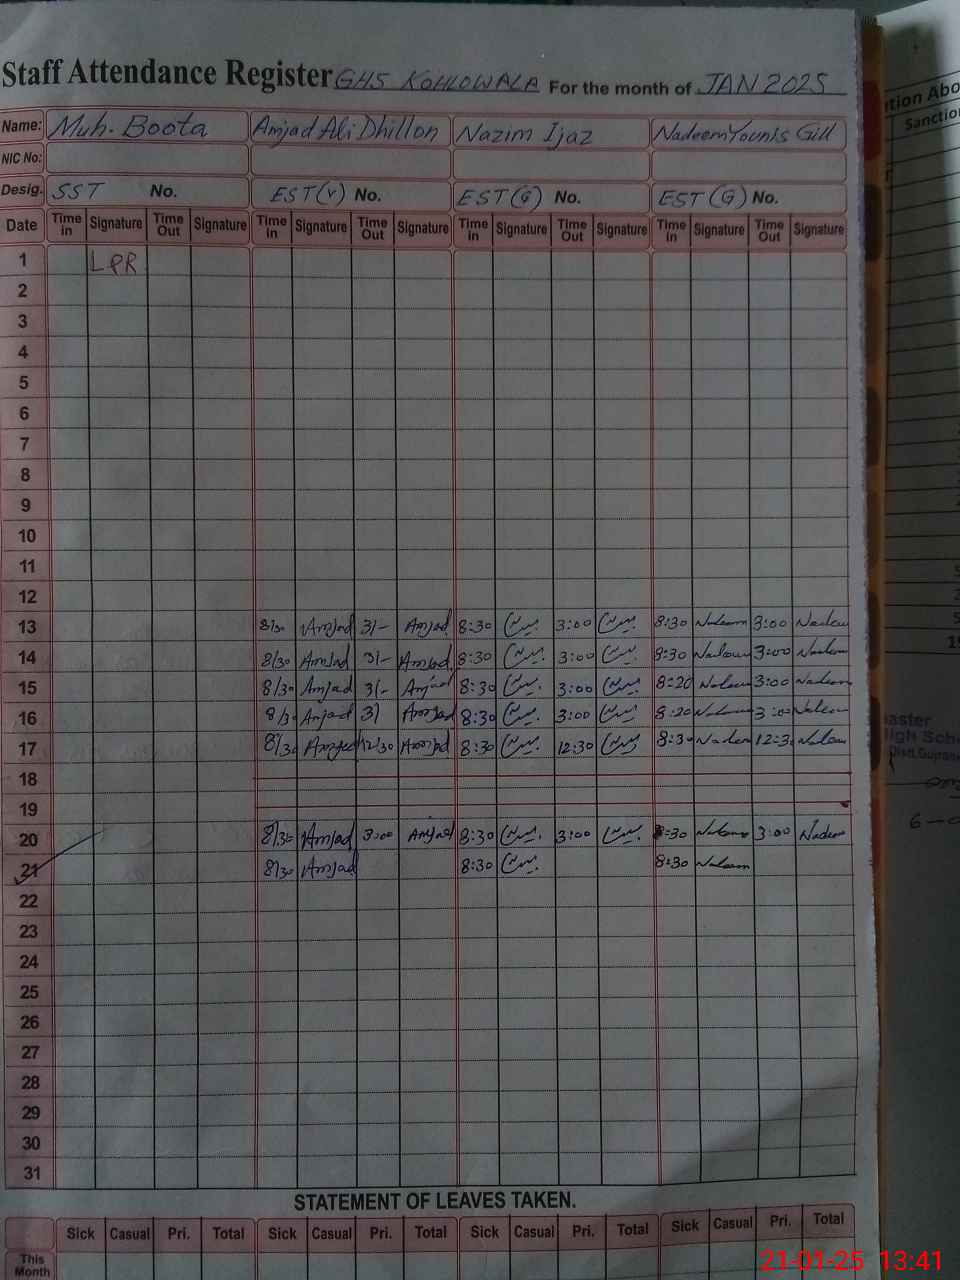 Staff Attendance Register GHS KOHLOWALA For the month of JAN 2025
Name: Muh. Boota Amjad Ali Dhillon Nazim Ijaz Nadeem Younis Gill
NIC No:
Desig. SST No. EST(V) No. EST(G) No. EST(G) No.
Date Time in Signature Time Out Signature Time In Signature Time Out Signature Time in Signature Time Out Signature Time in Signature Time Out Signature
1 LPR
2
3
4
5
6
7
8
9
10
11
12
13 8/30 Amjad 3/- Amjad 8:30 3:00 8:30 Nadeem 3:00
14 8/30 Amjad 3/- Amjad 8:30 3:00 8:30 Nadeem 3:00 Nadeem
15 8/30 Amjad 3/- Amjad 8:30 3:00 8:20 Nadeem 3:00 Nadeem
16 8/30 Amjad 3/ Amjad 8:30 3:00 8:20 Nadeem 3:00 Nadeem
17 8/30 Amjad 12/30 Amjad 8:30 12:30 8:30 Nadeem 12:30 Nadeem
18
19
20 8/30 Amjad 3:00 Amjad 8:30 3:00 8:30 Nadeem 3:00 Nadeem
21 8/30 Amjad 8:30 8:30 Nadeem
22
23
24
25
26
27
28
29
30
31
STATEMENT OF LEAVES TAKEN.
Sick Casual Pri. Total Sick Casual Pri. Total Sick Casual Pri. Total Sick Casual Pri. Total
This Month
21-01-25 13:41